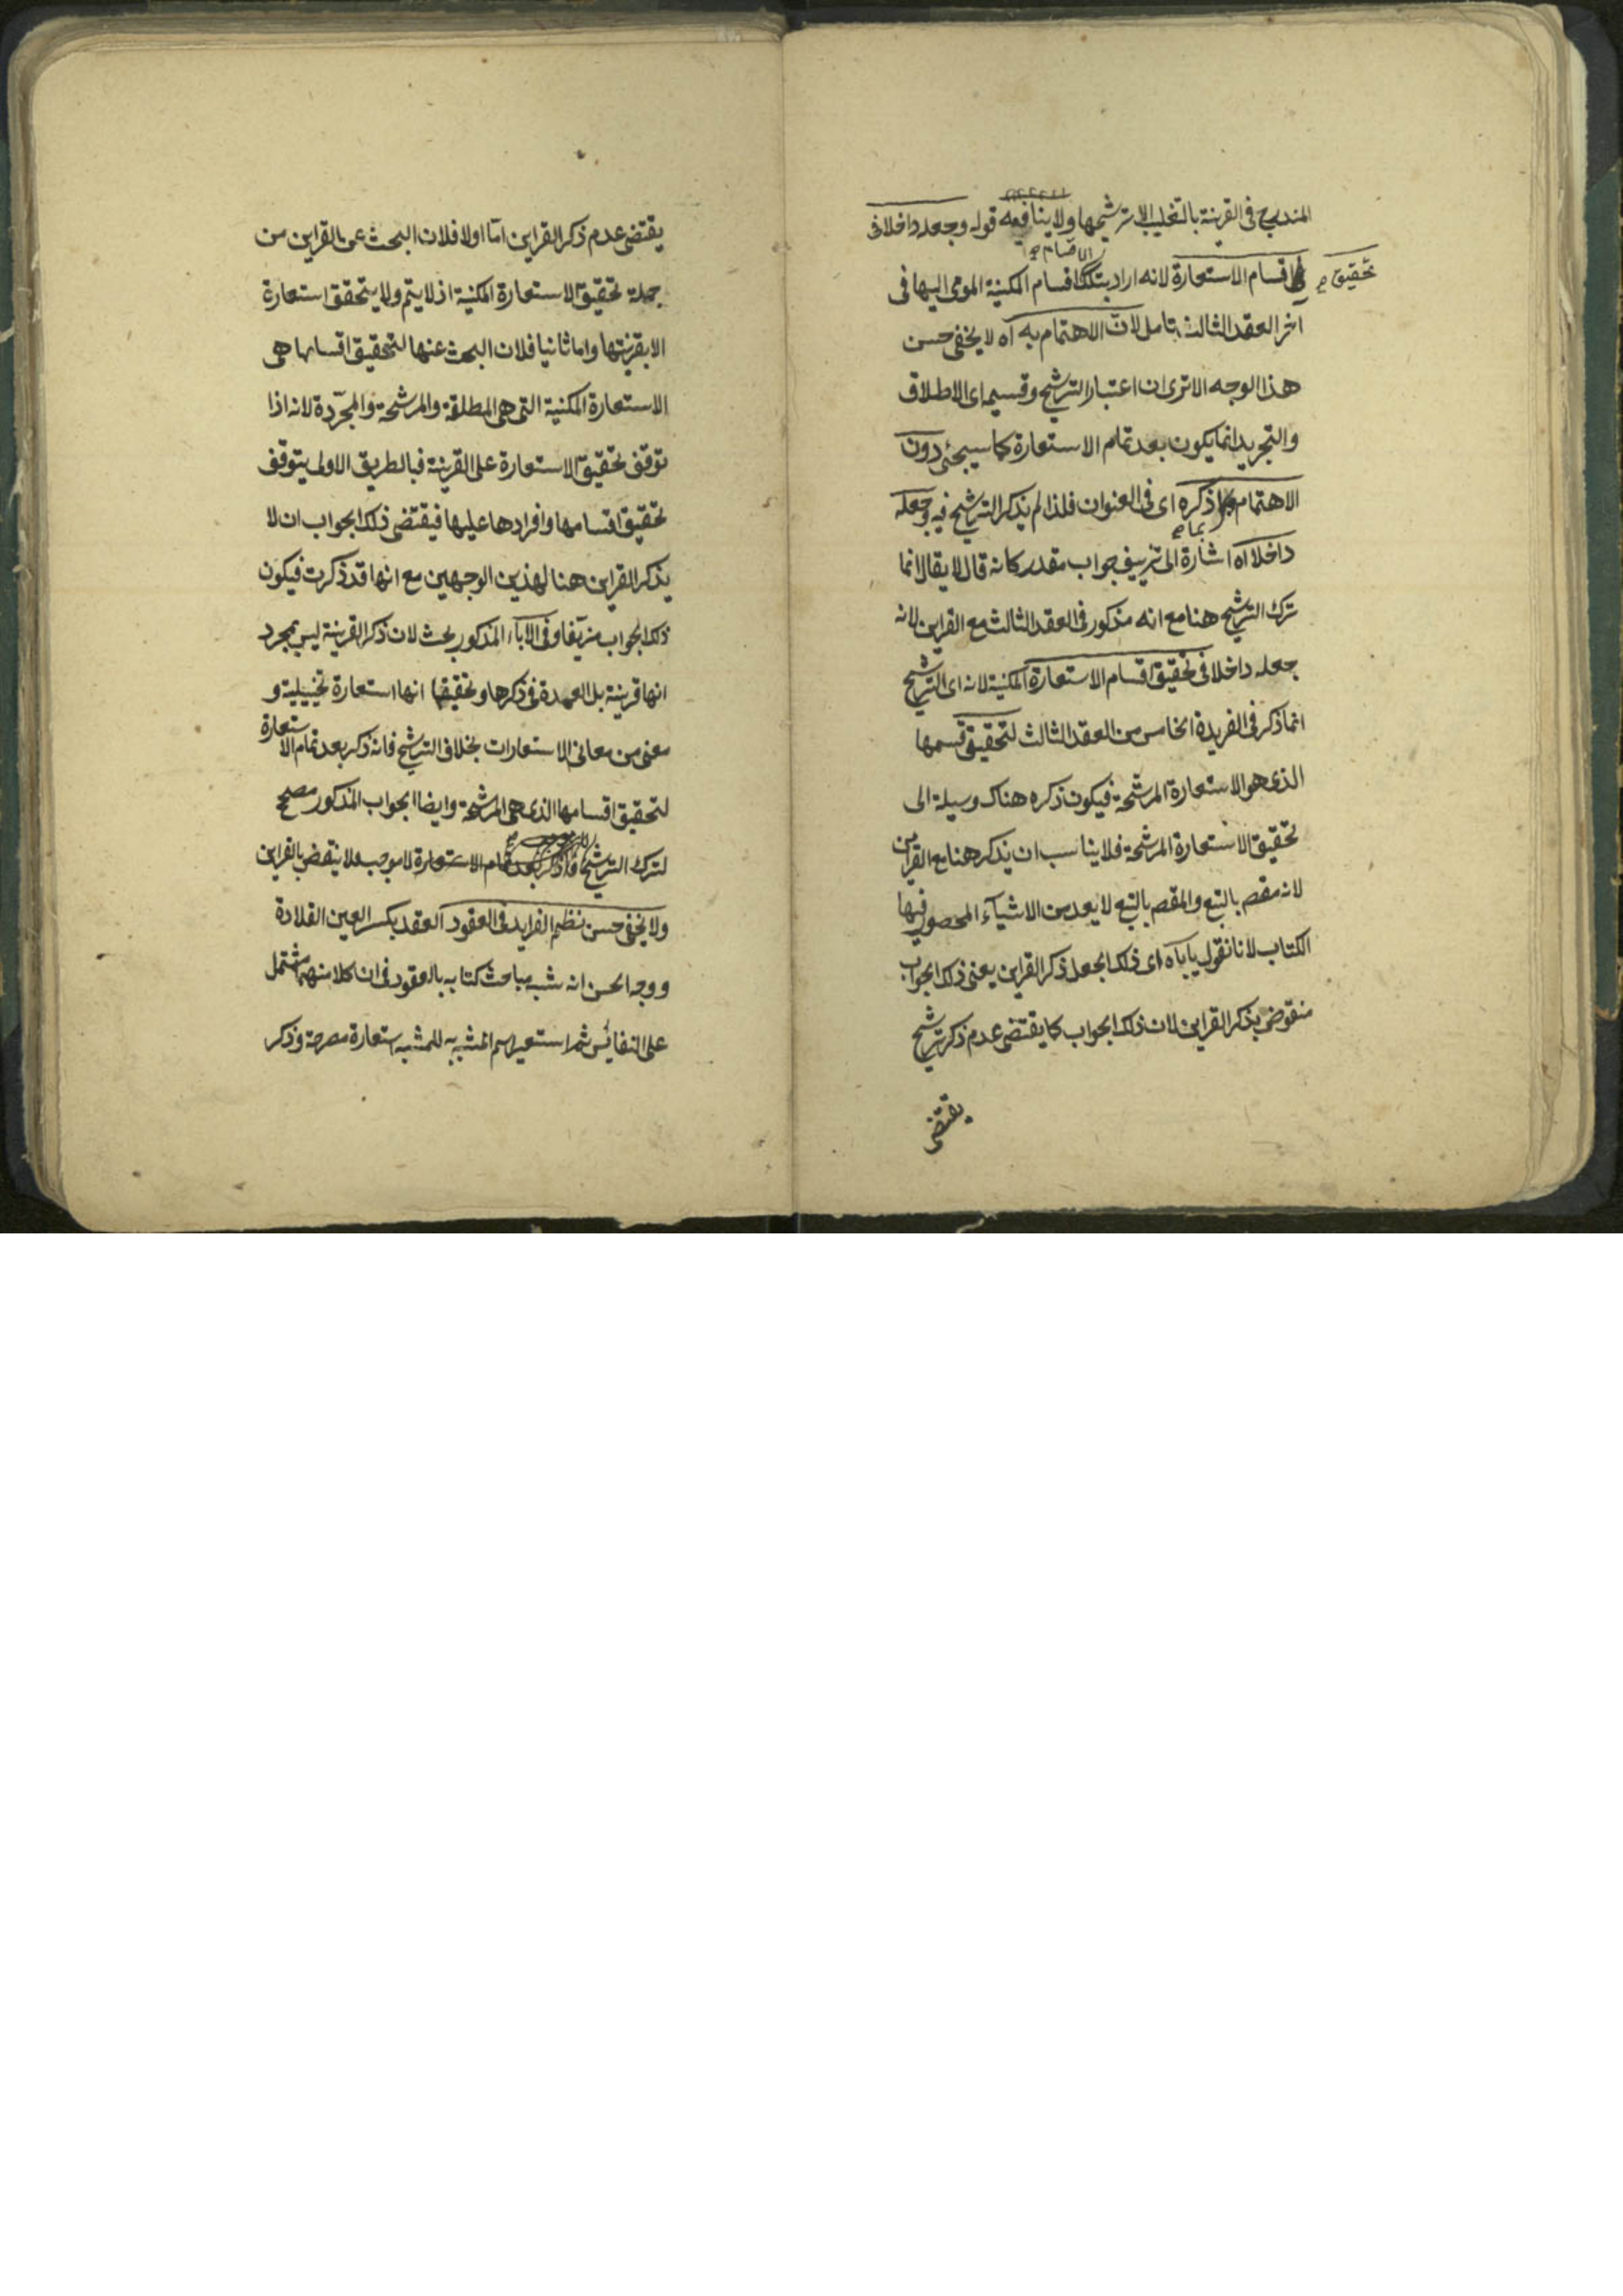 المندرج في القرينة بالتغليب الا ترشيحها ولا ينافيه قوله وجعله داخلا في
تحقيق صح
اقسام الاستعارة لانه اراد بتلك الاقسام صح اقسام المكنية المومى اليها في
آخر العقد الثالث تامل لان الاهتمام به آه لا يخفى حسن
هذا الوجه الا ترى ان اعتبار الترشيح وقسيميه اى الاطلاق
والتجريد انما يكون بعد تمام الاستعارة كما سيجئ دون
الاهتمام بما صح ذكره اى في العنوان فلذا لم يذكر الترشيح فيه وجعله
داخلا آه اشارة الى تزييف جواب مقدر كانه قال لا يقال انما
ترك الترشيح هنا مع انه مذكور في العقد الثالث مع القراين لانه
جعله داخلا في تحقيق اقسام الاستعارة المكنية لانه اى الترشيح
انما ذكر في الفريدة الخامس من العقد الثالث لتحقيق قسمها
الذى هو الاستعارة المرشحة فيكون ذكره هناك وسيلة الى
تحقيق الاستعارة المرشحة فلا يناسب ان يذكر هنا مع القراين
لانه مقصم بالتبع والمقصم بالتبع لا يعد من الاشياء المحصور فيها
الكتاب لانا نقول ياباه اى ذلك الجعل ذكر القراين يعنى ذلك الجواب
منقوض بذكر القراين لان ذلك الجواب كما يقتضى عدم ذكر ترشيح
يقتضى
يقتضى عدم ذكر القراين اما اولا فلان البحث عن القراين من
جملة تحقيق الاستعارة المكنية اذ لا يتم ولا يتحقق استعارة
الا بقرينتها واما ثانيا فلان البحث عنها لتحقيق اقسامها هى
الاستعارة المكنية التى هى المطلقة والمرشحة والمجردة لانه اذا
توقف تحقيق الاستعارة على القرينة فبالطريق الاولى يتوقف
تحقيق اقسامها وافرادها عليها فيقتضى ذلك الجواب ان لا
يذكر القراين هنا لهذين الوجهين مع انها قد ذكرت فيكون
ذلك الجواب مزيفا وفى الاباء المذكور بحث لان ذكر القرينة ليس بمجرد
انها قرينة بل العمدة فى ذكرها وتحقيقها انها استعارة تخييلية و
معنى من معانى الاستعارات بخلاف الترشيح فانه ذكر بعد تمام الاستعارة
لتحقيق اقسامها الذى هى المرشحة وايضا الجواب المذكور مصحح
لترك الترشيح بعد تمام الاستعارة لا موجب فلا ينتقض بالقراين
ولا يخفى حسن نظم الفرايد فى العقود العقد بكسر العين القلادة
ووجه الحسن انه شبه مباحث كتابه بالعقود فى ان كلا منهما مشتمل
على النفائس ثم استعير اسم المشبه به للمشبه استعارة مصرحة وذكر